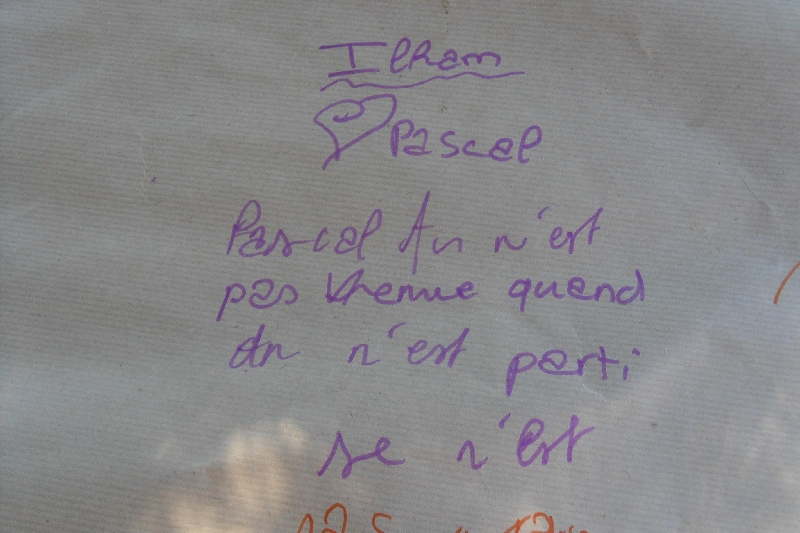 Ilham
Pascal
Pascal tu n'est
pas venue quand
on n'est parti
se n'est